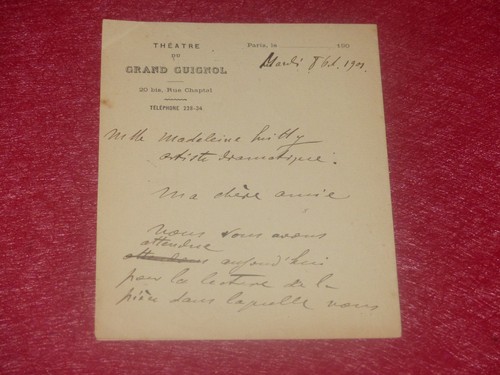 THÉATRE
DU
GRAND GUIGNOL
20 bis, Rue Chaptal
TÉLÉPHONE 228-34
Paris, le 190
Mardi 8 1901
Mlle Madeleine
artiste dramatique.
Ma chère amie
nous vous avons
attendue
aujourd'hui
pour la lecture de la
pièce dans laquelle vous